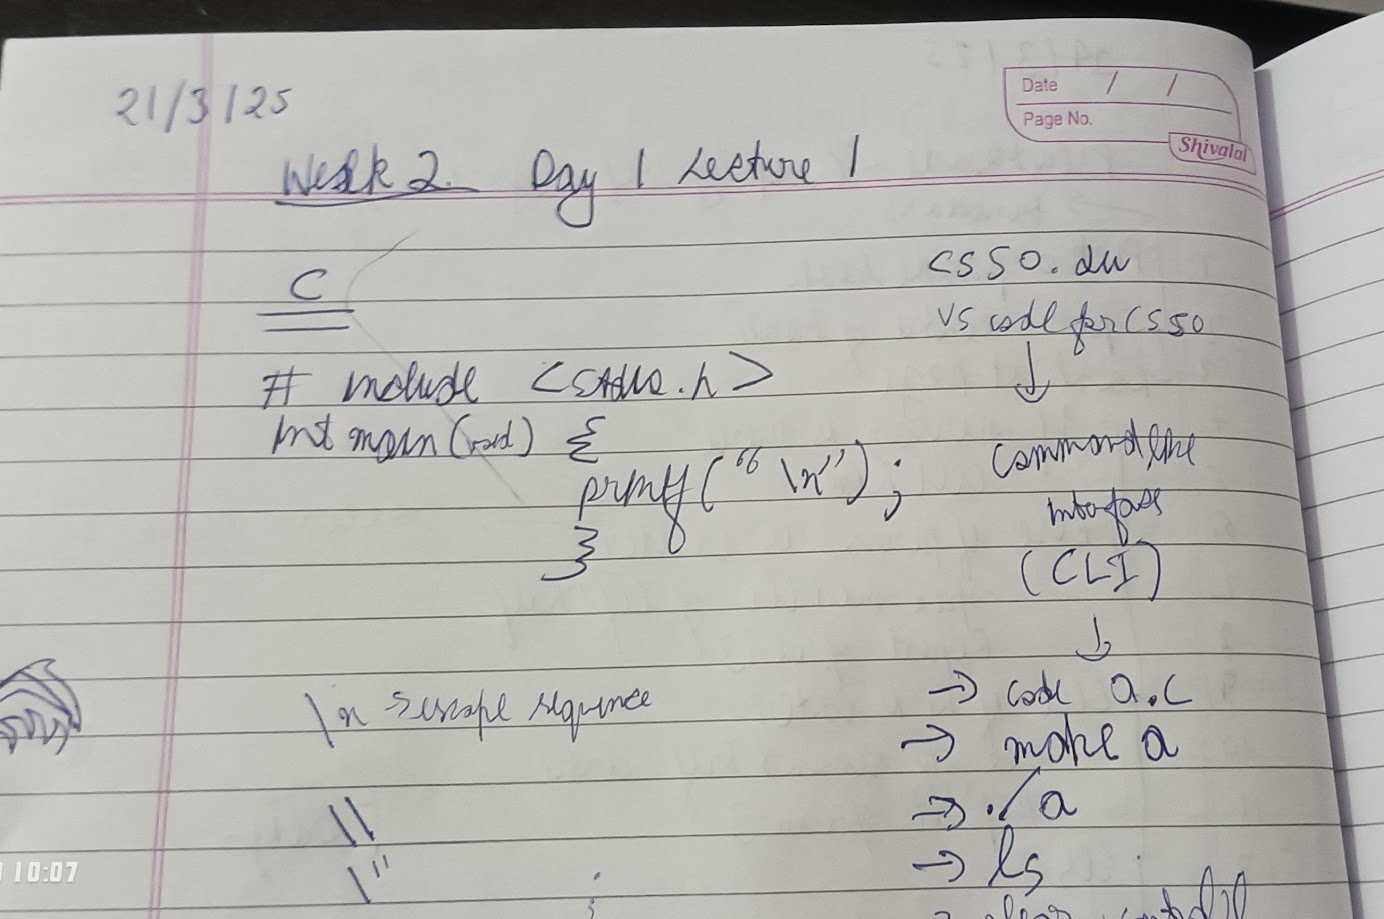 21/3/25
Date / /
Page No.
Shivalal
Week 2. Day 1 Lecture 1
C
# include <stdio.h>
int main(void) {
printf("\n");
}
\n → escape sequence
\\
\"
CS50.dev
VS code for CS50
↓
command line
interface
(CLI)
↓
→ code a.c
→ make a
→ ./a
→ ls
10:07